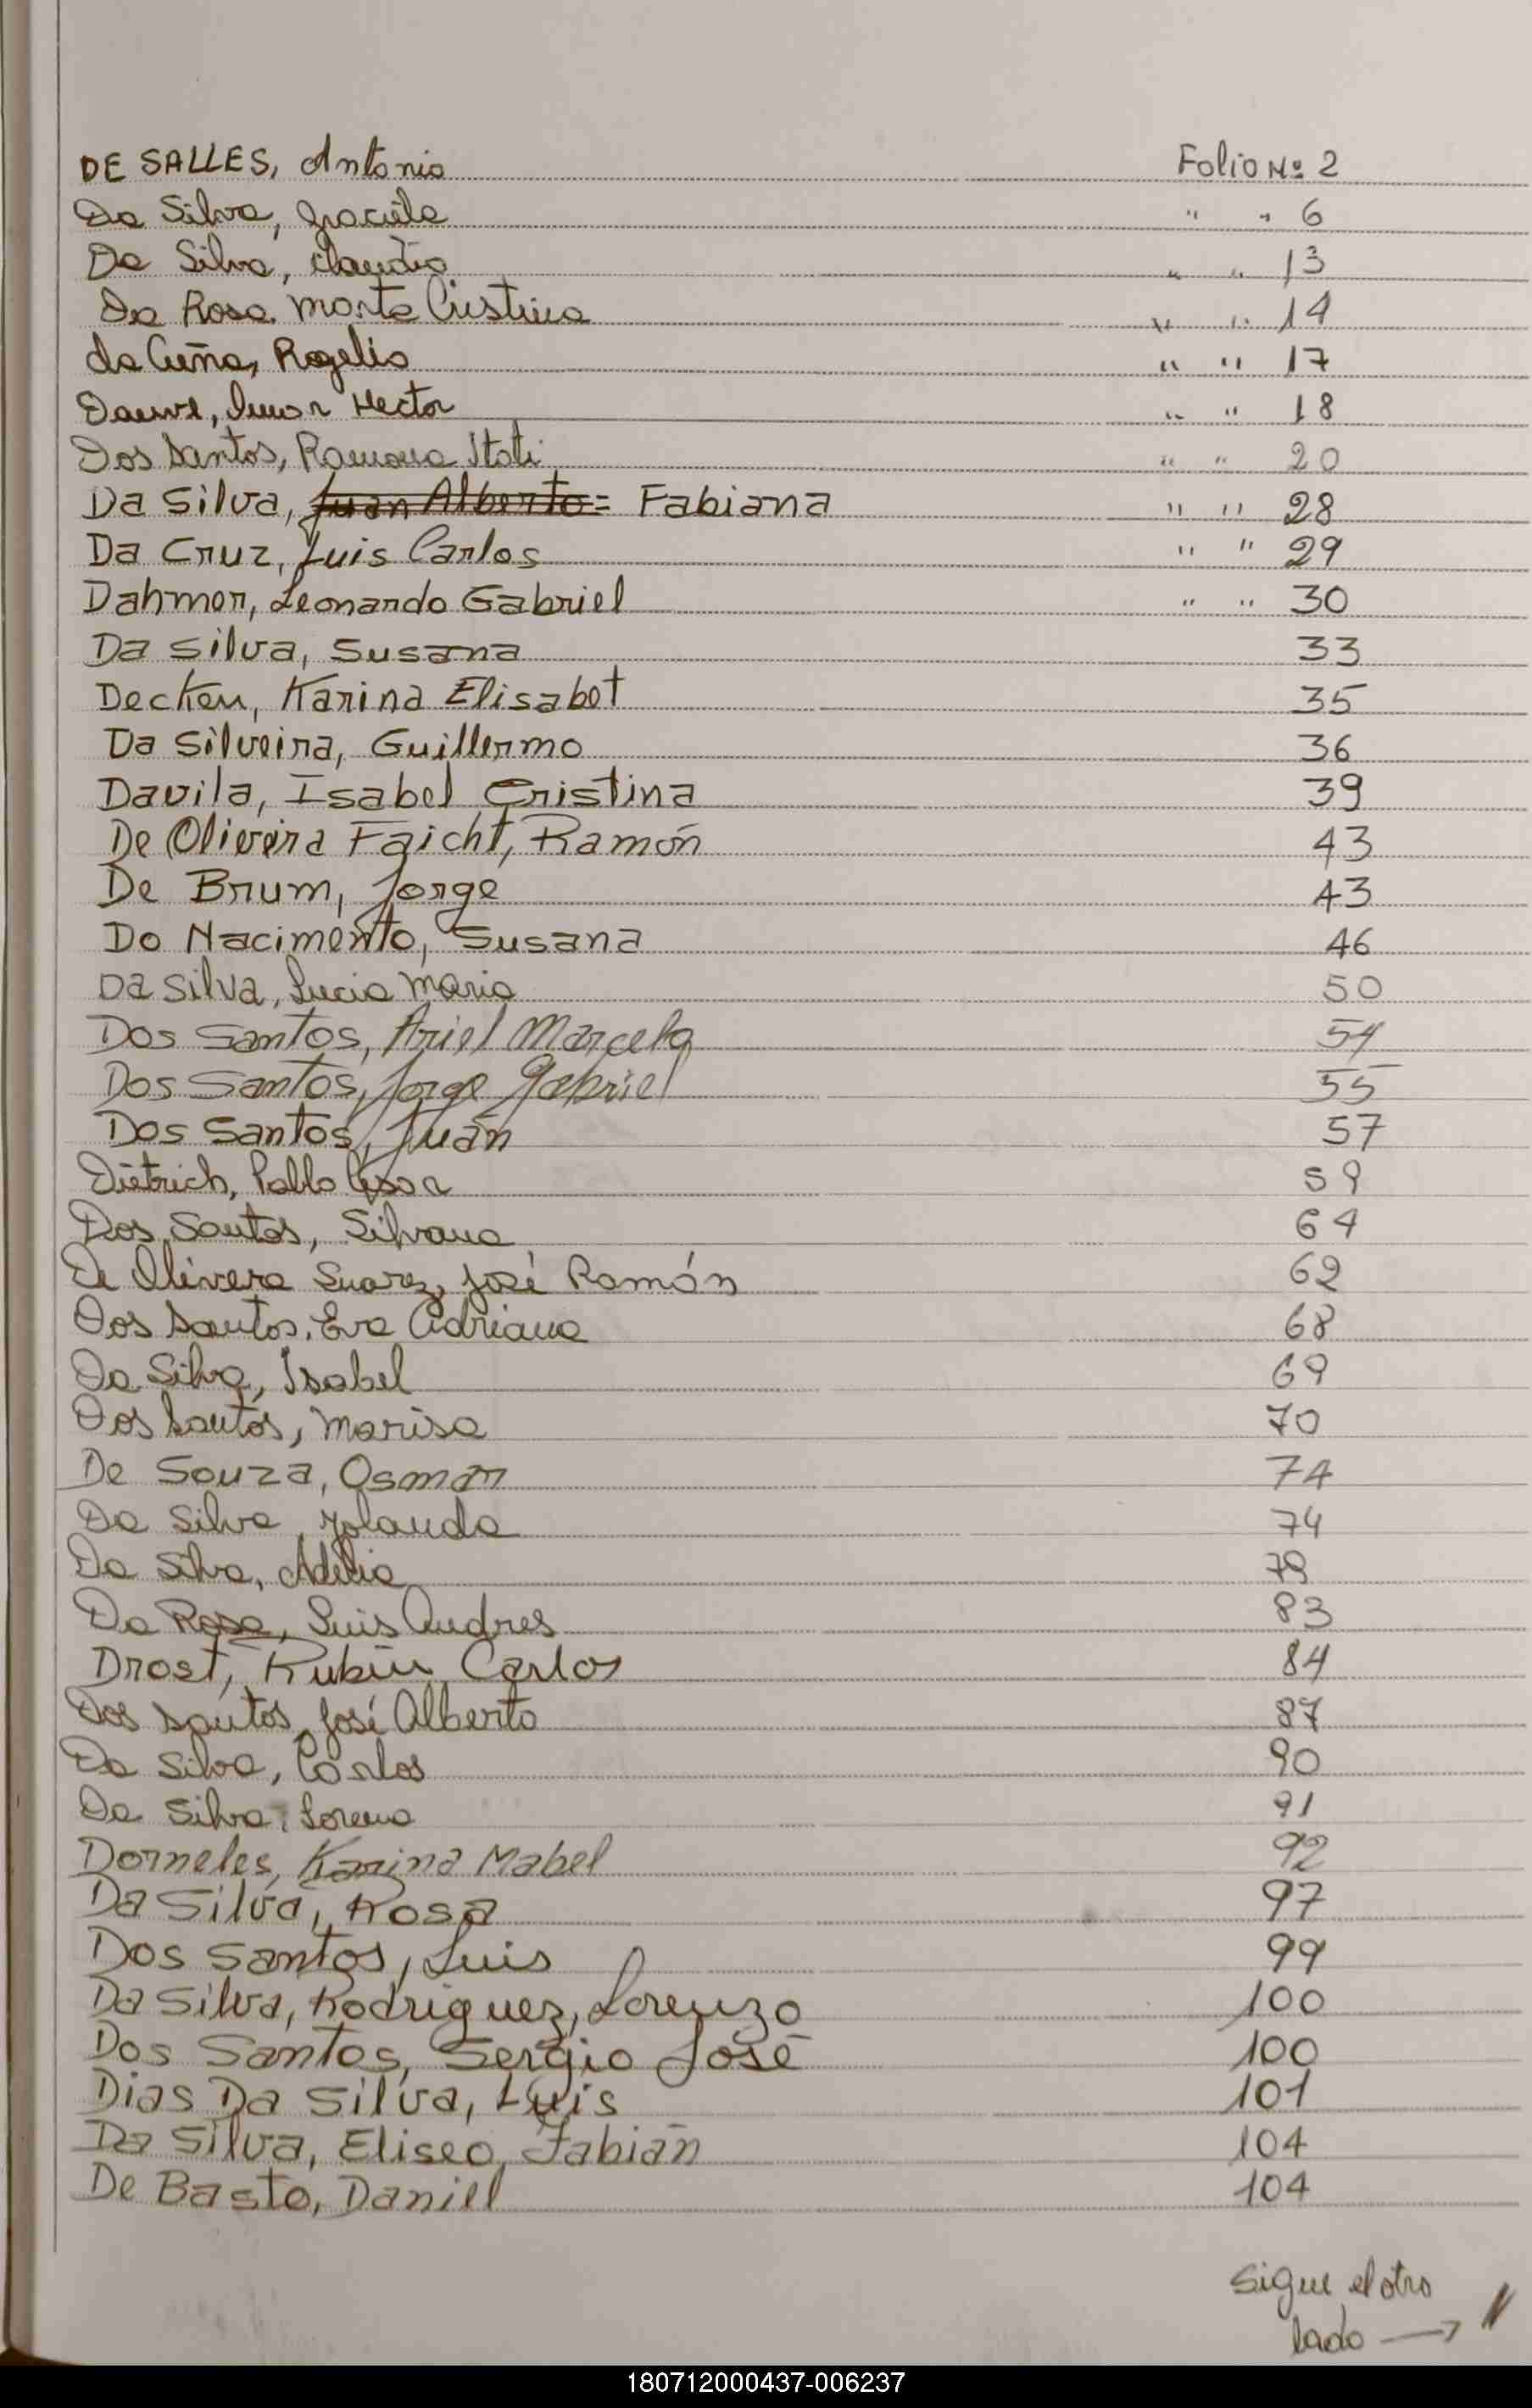 DE SALLES, Antonio Folio Nº 2
Da Silva, Graciela " " 6
Da Silva, Claudio " " 13
Da Rosa Marta Cristina " " 14
da Cuña, Rogelio " " 17
Hector " " 18
Dos Santos, Ramona Itati " " 20
Da Silva, Juan Alberto = Fabiana " " 28
Da Cruz, Luis Carlos " " 29
Dahmer, Leonardo Gabriel " " 30
Da Silva, Susana 33
Decker, Karina Elisabet 35
Da Silveira, Guillermo 36
Davila, Isabel Cristina 39
De Oliveira Faicht, Ramón 43
De Brum, Jorge 43
Do Nacimento, Susana 46
Da Silva, Lucia Maria 50
Dos Santos, Ariel Marcelo 54
Dos Santos, Jorge Gabriel 55
Dos Santos, Juan 57
Dietrich, Pablo Cesar 59
Dos Santos, Silvana 64
De Olivera Suarez, José Ramón 62
Dos Santos, Eva Adriana 68
Da Silva, Isabel 69
Dos Santos, Marisa 70
De Souza, Osmar 74
Da Silva, Yolanda 74
Da Silva, Adelia
Da Rosa, Luis Andres 83
Drost, Rubén Carlos 84
Dos Santos, José Alberto 87
Da Silva, Carlos 90
Da Silva, Lorena 91
Dorneles, Karina Mabel 92
Da Silva, Rosa 97
Dos Santos, Luis 99
Da Silva, Rodriguez, Lorenzo 100
Dos Santos, Sergio José 100
Dias Da Silva, Luis 101
Da Silva, Eliseo Fabián 104
De Basto, Daniel 104
Sigue el otro
lado →
180712000437-006237